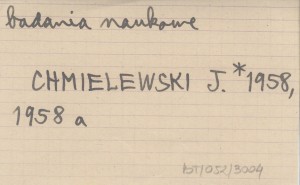 badania naukowe
CHMIELEWSKI J. *1958,
1958 a
BT/052/3004